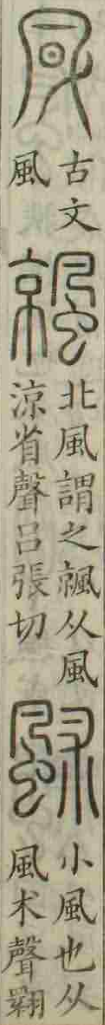 古文
風
䬅
北風謂之䬅从風
涼省聲呂張切
小風也从
風术聲翾